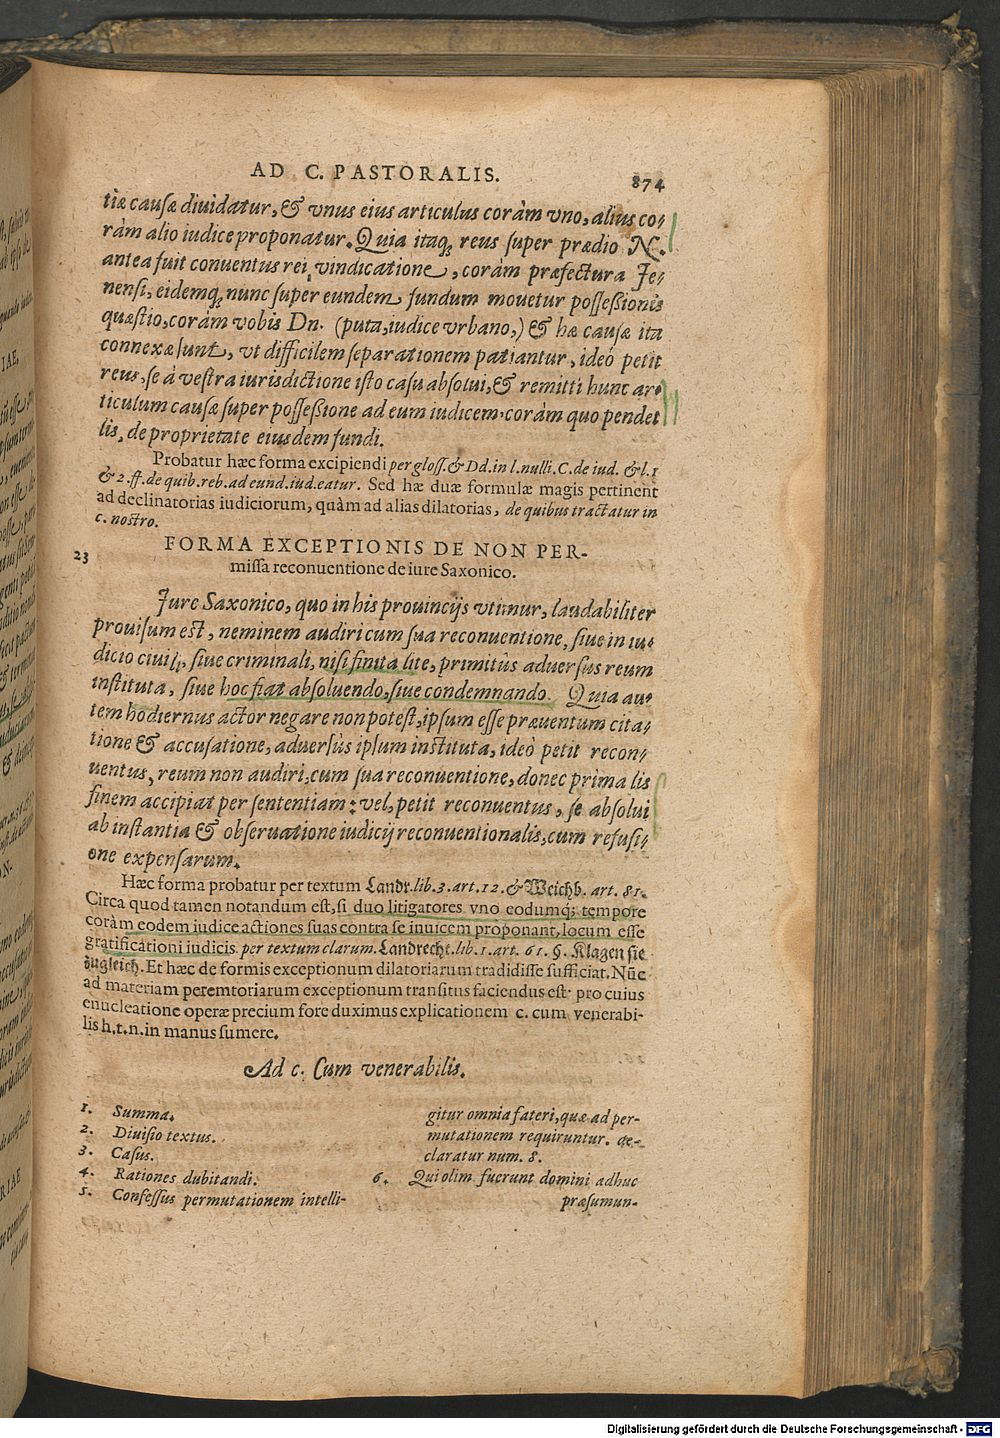 AD C. PASTORALIS. 874
tiæ causæ diuidatur, & vnus eius articulus coràm vno, alius co-
ràm alio iudice proponatur. Quia itaq; reus super prædio N.
antea fuit conuentus rei vindicatione, coràm præfectura Je-
nensi, eidemq; nunc super eundem fundum mouetur possessionis
quæstio, coràm vobis Dn. (puta, iudice vrbano,) & hæ causæ ita
connexæ sunt, vt difficilem separationem patiantur, ideò petit
reus, se à vestra iurisdictione isto casu absolui, & remitti hunc ar-
ticulum causæ super possessione ad eum iudicem, coràm quo pendet
lis, de proprietate eiusdem fundi.
Probatur hæc forma excipiendi per gloss. & Dd. in l. nulli. C. de iud. & l. 1
& 2. ff. de quib. reb. ad eund. iud. eatur. Sed hæ duæ formulæ magis pertinent
ad declinatorias iudiciorum, quàm ad alias dilatorias, de quibus tractatur in
c. nostro.
23 FORMA EXCEPTIONIS DE NON PER-
missa reconuentione de iure Saxonico.
Jure Saxonico, quo in his prouincijs vtimur, laudabiliter
prouisum est, neminem audiri cum sua reconuentione, siue in iu-
dicio ciuili, siue criminali, nisi finita lite, primitùs aduersus reum
instituta, siue hoc fiat absoluendo, siue condemnando. Quia au-
tem hodiernus actor negare non potest, ipsum esse præuentum cita-
tione & accusatione, aduersùs ipsum instituta, ideò petit recon-
uentus, reum non audiri, cum sua reconuentione, donec prima lis
finem accipiat per sententiam: vel, petit reconuentus, se absolui
ab instantia & obseruatione iudicij reconuentionalis, cum refusi-
one expensarum.
Hæc forma probatur per textum Landr. lib. 3. art. 12. & Weichb. art. 81.
Circa quod tamen notandum est, si duo litigatores vno eodumq; tempore
coràm eodem iudice actiones suas contra se inuicem proponant, locum esse
gratificationi iudicis. per textum clarum. Landrecht. lib. 1. art. 61. §. Klagen sie
zugleich. Et hæc de formis exceptionum dilatoriarum tradidisse sufficiat. Nũc
ad materiam peremtoriarum exceptionum transitus faciendus est: pro cuius
enucleatione operæ precium fore duximus explicationem c. cum venerabi-
lis h. t. n. in manus sumere.
Ad c. Cum venerabilis.
1. Summa.
2. Diuisio textus.
3. Casus.
4. Rationes dubitandi.
5. Confessus permutationem intelli-
gitur omnia fateri, quæ ad per-
mutationem requiruntur. de-
claratur num. 8.
6. Qui olim fuerunt domini adhuc
præsumun-
Digitalisierung gefördert durch die Deutsche Forschungsgemeinschaft - DFG